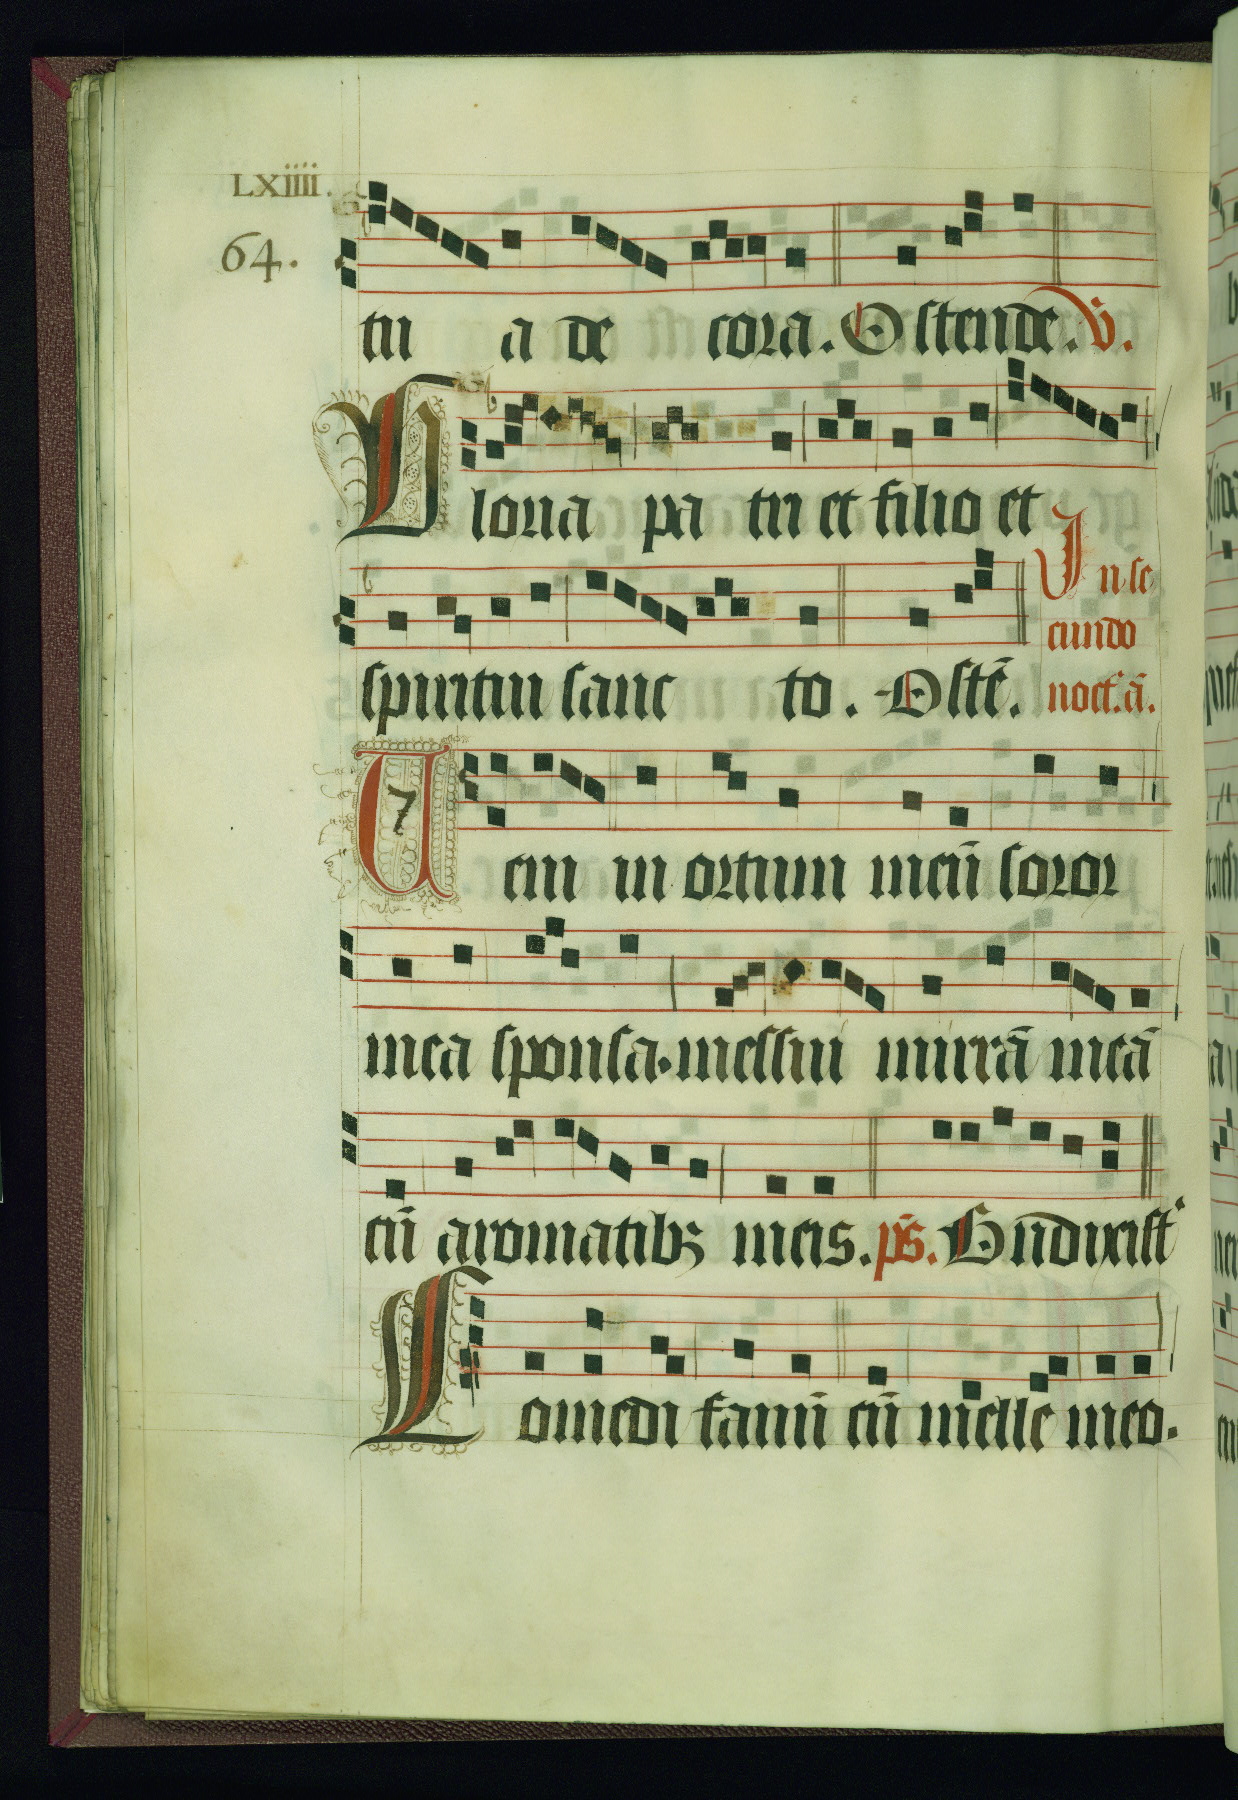 LXiiii.
64.
tu a de cora. Ostende. V̄.
Gloria pa tri et filio et
spiritui sanc to. Ostē. In se
cundo
noct. ā.
Veni in ortum meū soror
mea sponsa. messui mirrā meā
cū aromatibꝫ meis. p̄s. Bndixist
Comedi favū cū melle meo.